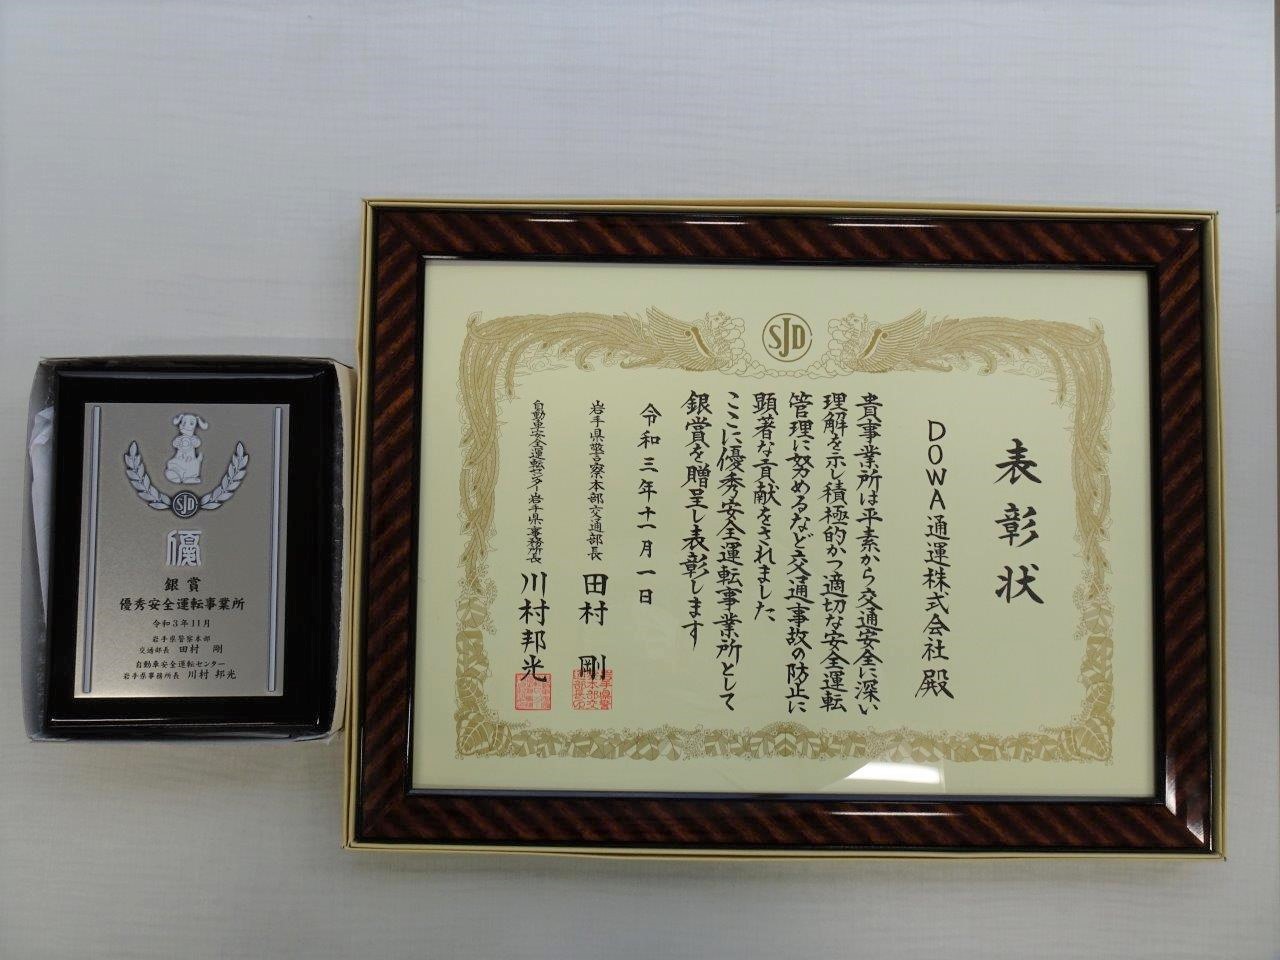 SJD
優
銀賞
優秀安全運転事業所
令和3年11月
岩手県警察本部
交通部長 田村 剛
自動車安全運転センター
岩手県事務所長 川村 邦光
SJD
表彰状
DOWA通運株式会社殿
貴事業所は平素から交通安全に深い
理解を示し積極的かつ適切な安全運転
管理に努めるなど交通事故の防止に
顕著な貢献をされました
ここに優秀安全運転事業所として
銀賞を贈呈し表彰します
令和三年十一月一日
岩手県警察本部交通部長 田村 剛
自動車安全運転センター岩手県事務所長 川村邦光